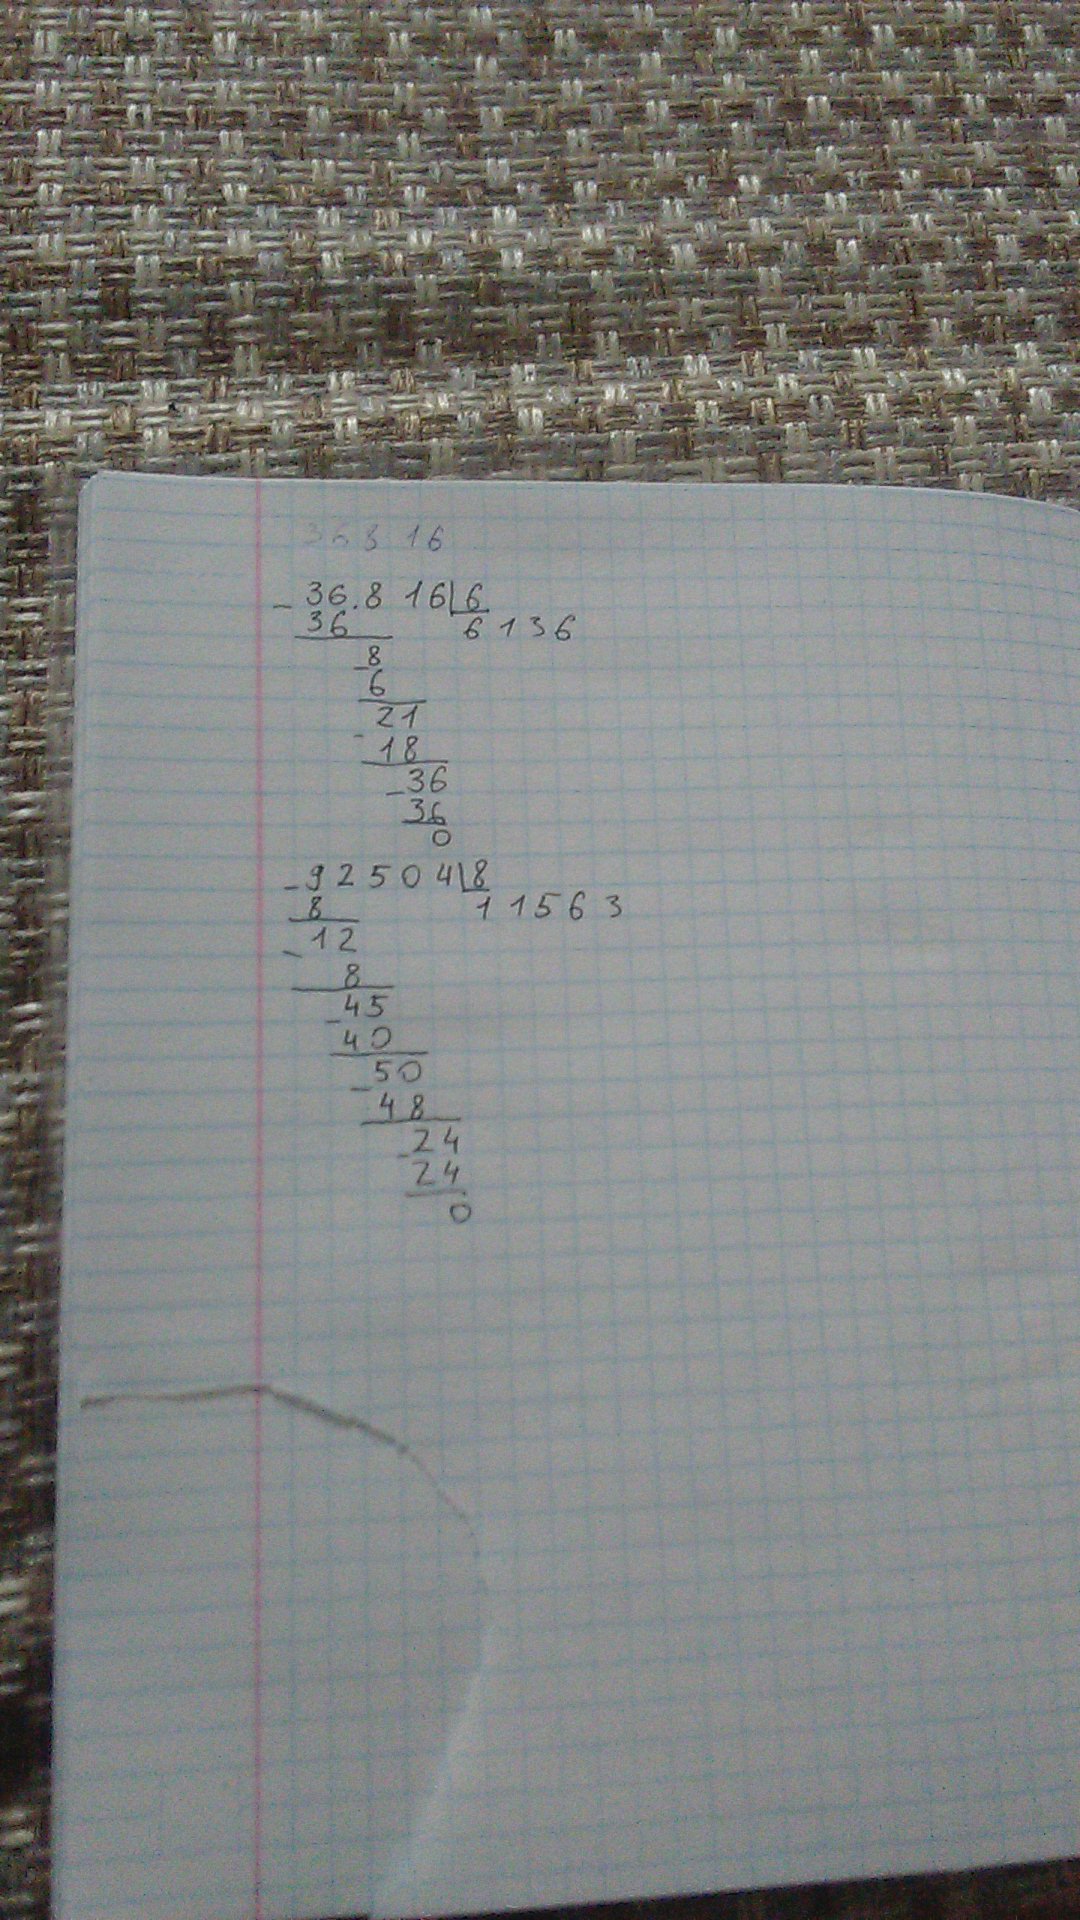 36816
- 36.816|6
36 6136
- 8
6
- 21
18
- 36
36
0
- 92504|8
8 11563
- 12
8
- 45
40
- 50
48
- 24
24
0